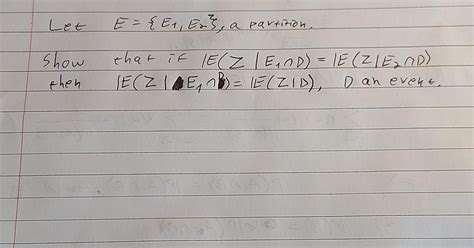 Let E = {E₁, E₂}, a partition.
Show that if IE(Z | E₁∩D) = IE(Z | E₂∩D)
then IE(Z | E₁∩D) = IE(Z | D), D an event.